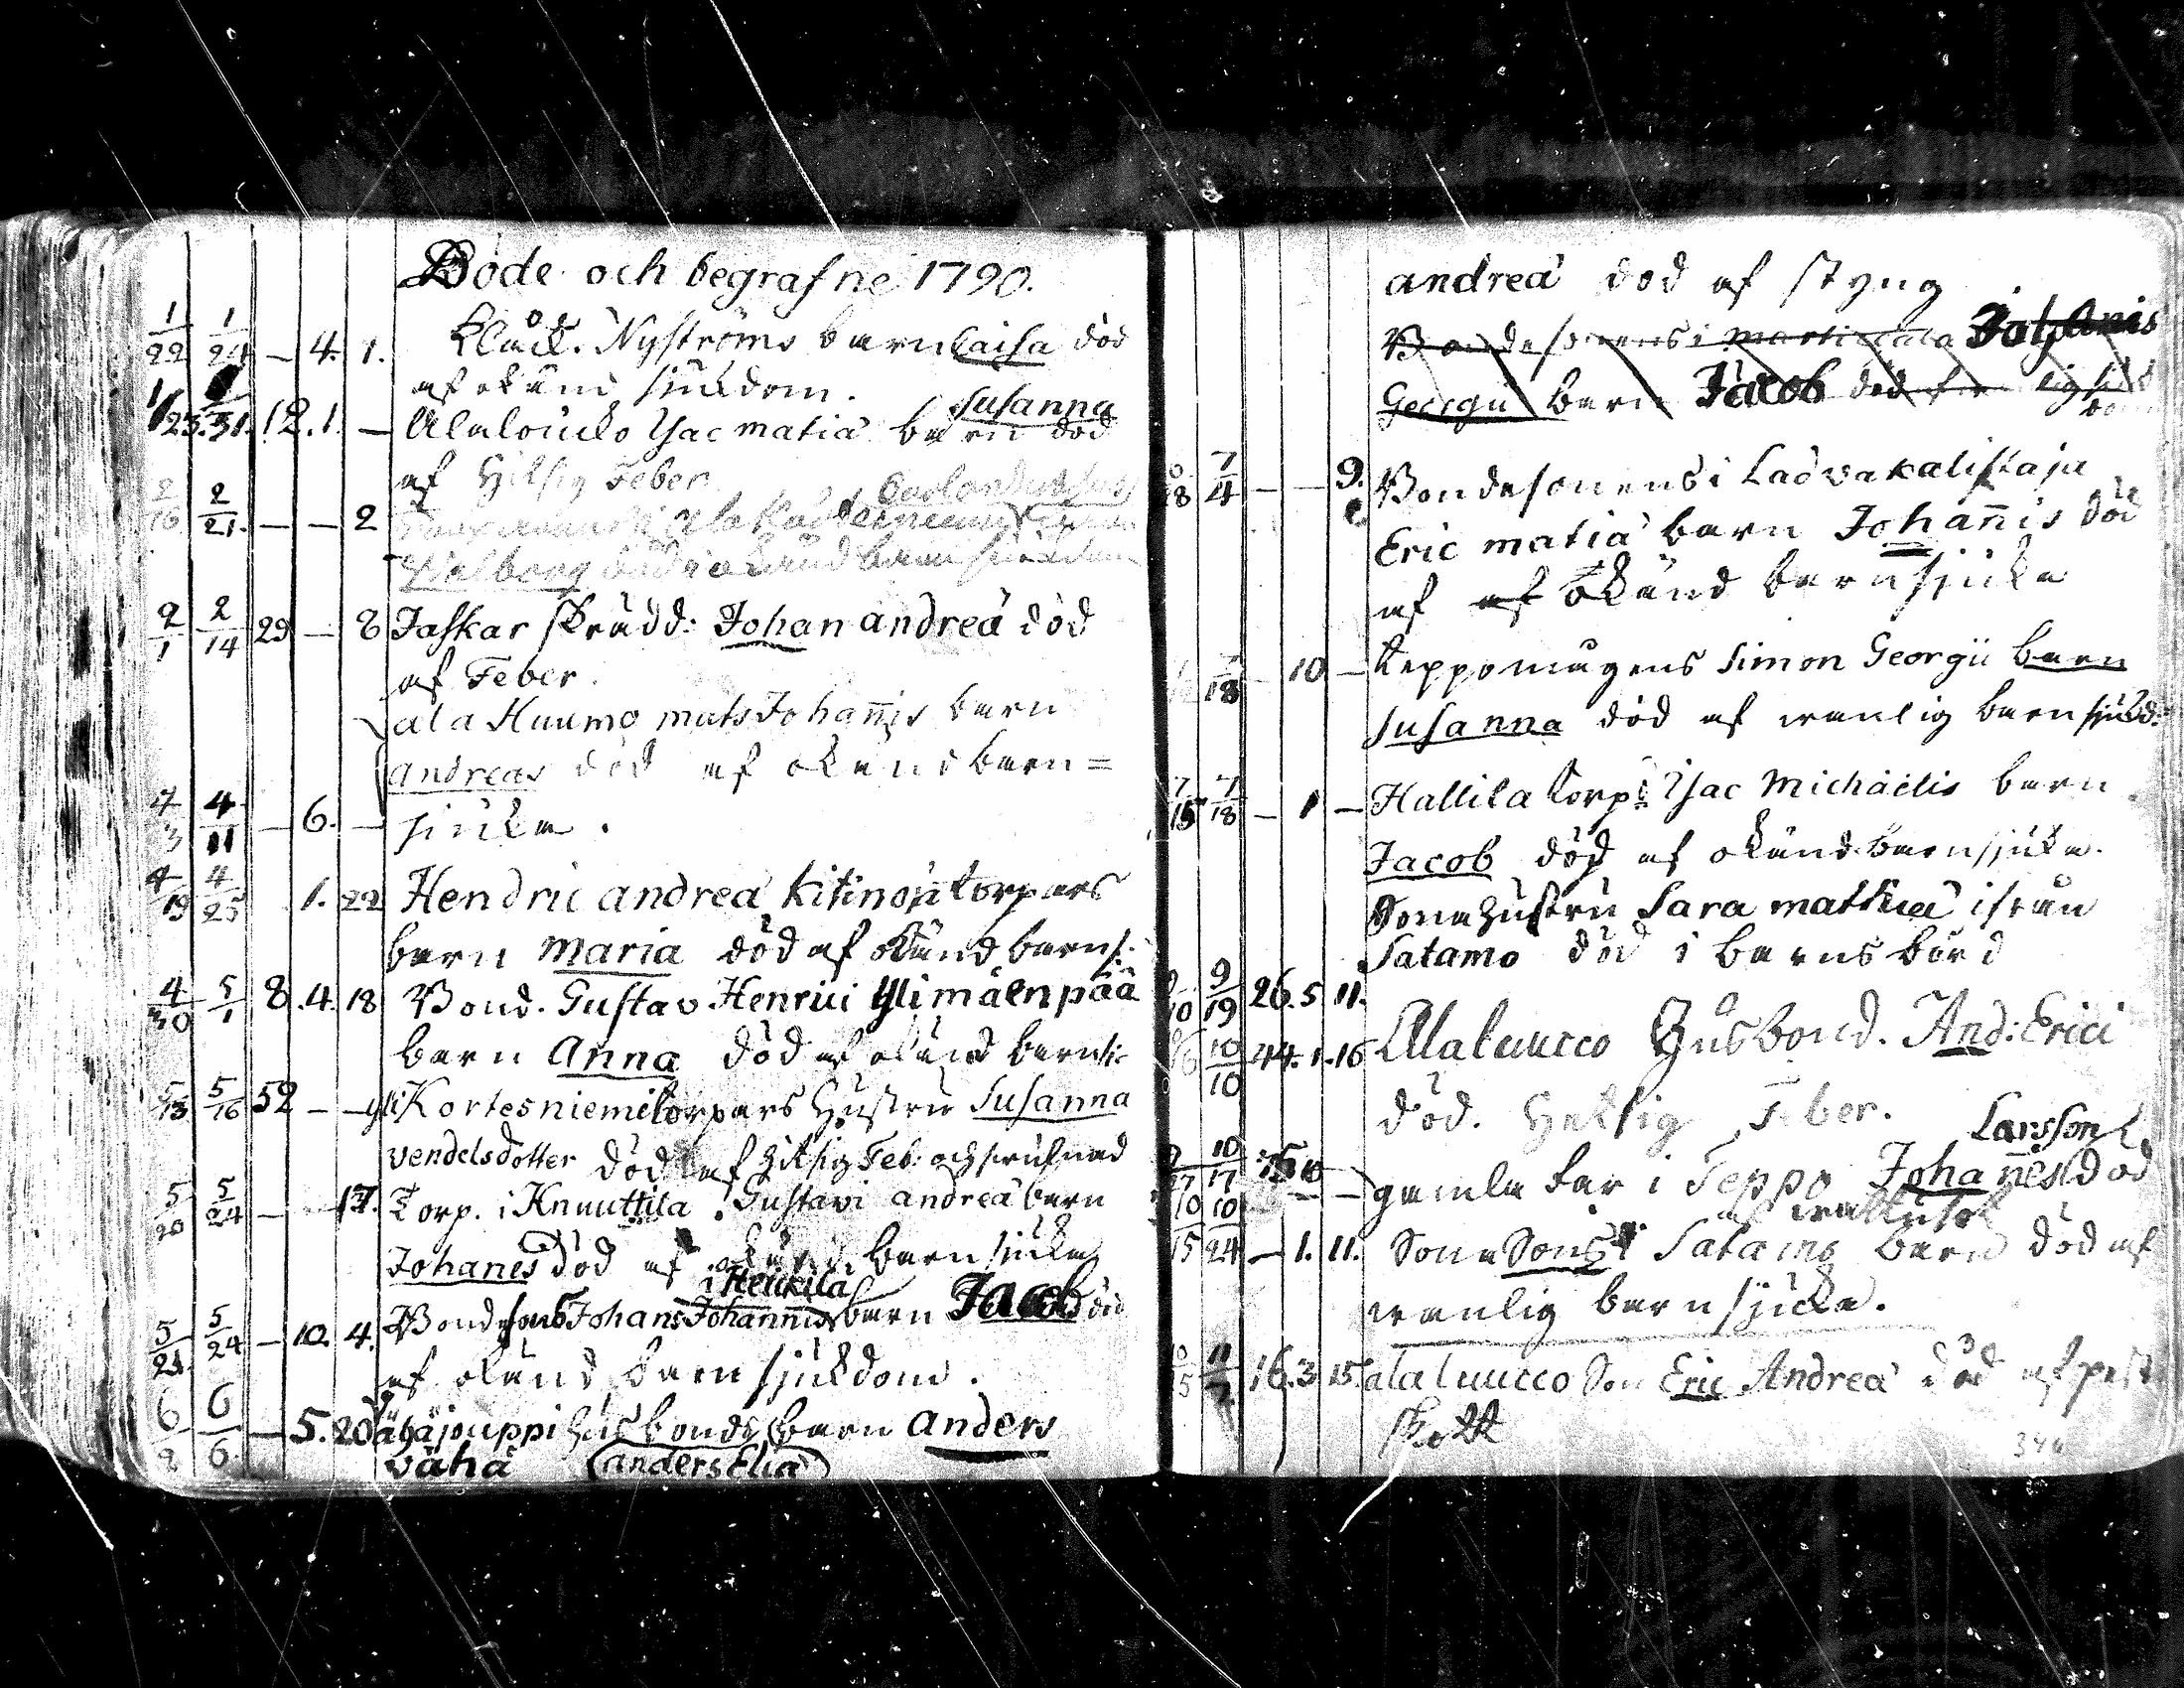 Döde och begrafne 1790.
1/22 1/24 — 4. 1. Klåck. Nyströms barn Caisa död
af okänd sjukdom.
1/23. 31. 12. 1. — Alalouko Isac matiæ barn Susanna död
af Hitsig Feber
2/16 2/21. — — 2
Valborg död okänd barnsjukdom
2/1 2/14 29 — 8 Jaskar skrädd: Johan andreæ död
af Feber.
ala Huumo mats Johannis barn
andreas död af okänd barn=
4/3 4/11 — 6. — sjuka.
4/19 4/25 1. 22 Hendric andreæ Kitinoja torpars
barn maria död af okänd barns:
4/30 5/1 8. 4. 18 Bond. Gustav Henrici Ylimäenpää
barn anna död af okänd barns:
5/13 5/16 52 — — yli Kortesniemi torpars Hustru Susanna
vendelsdotter död af hitsig Feb: och
5/20 5/24 — 17. Torp. i Knuuttila Gustavi andreæ barn
Johanes död af okänd barnsjuka
i Heikkilä
5/21 5/24 — 10. 4. Bondesons Johans Johannis barn Jacob död
af okänd barn sjukdom.
6/2 6/6. — 5. 20 äjäjouppi husbonds barn anders
vähä (anders Eliæ)
andreæ död af styng
Bondesonens i Johanis
Georgii barn Jacob död
18 7/4 — — 9. Bondesonens i Ladvakalistaja
Eric matiæ barn Johannis död
af af okänd barnsjuka
7/18 — 10 — Reppomågens Simon Georgii barn
Susanna död af vanlig barnsjukd:
7/15 7/18 — 1 — Hallila torp: Isac Michaelis barn
Jacob död af okänd barnsjuka.
Sonahustru Sara mathiæ ifrån
Satamo död i barnsbörd
10 9/19 26. 5 11.
10/10 44. 1. 16 Alaluucco Husbond. And: Erici
död. Hetsig Feber.
Larsson
10/17 gamla far i Seppo Johanes död
10/15 10/24 — 1. 11. Sona Sons i Satamo barn död af
vanlig barnsjuka.
16. 3 15. alaluucco Son Eric Andreæ död af